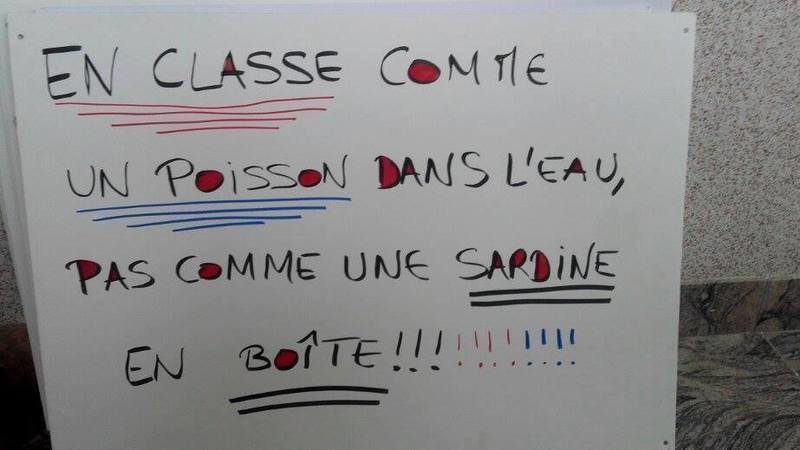 EN CLASSE COMME
UN POISSON DANS L'EAU,
PAS COMME UNE SARDINE
EN BOÎTE!!!!!!!!!!!